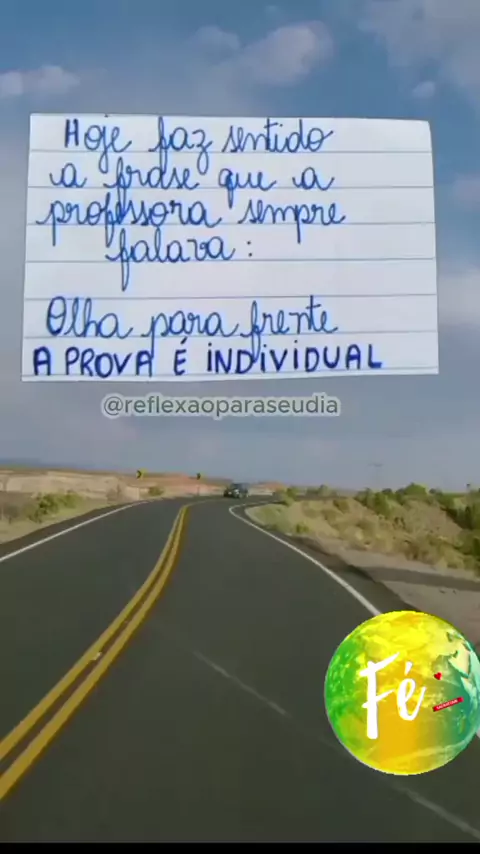 Hoje faz sentido
a frase que a
professora sempre
falava:
Olha para frente
A PROVA É INDIVIDUAL
@reflexaoparaseudia
Fé